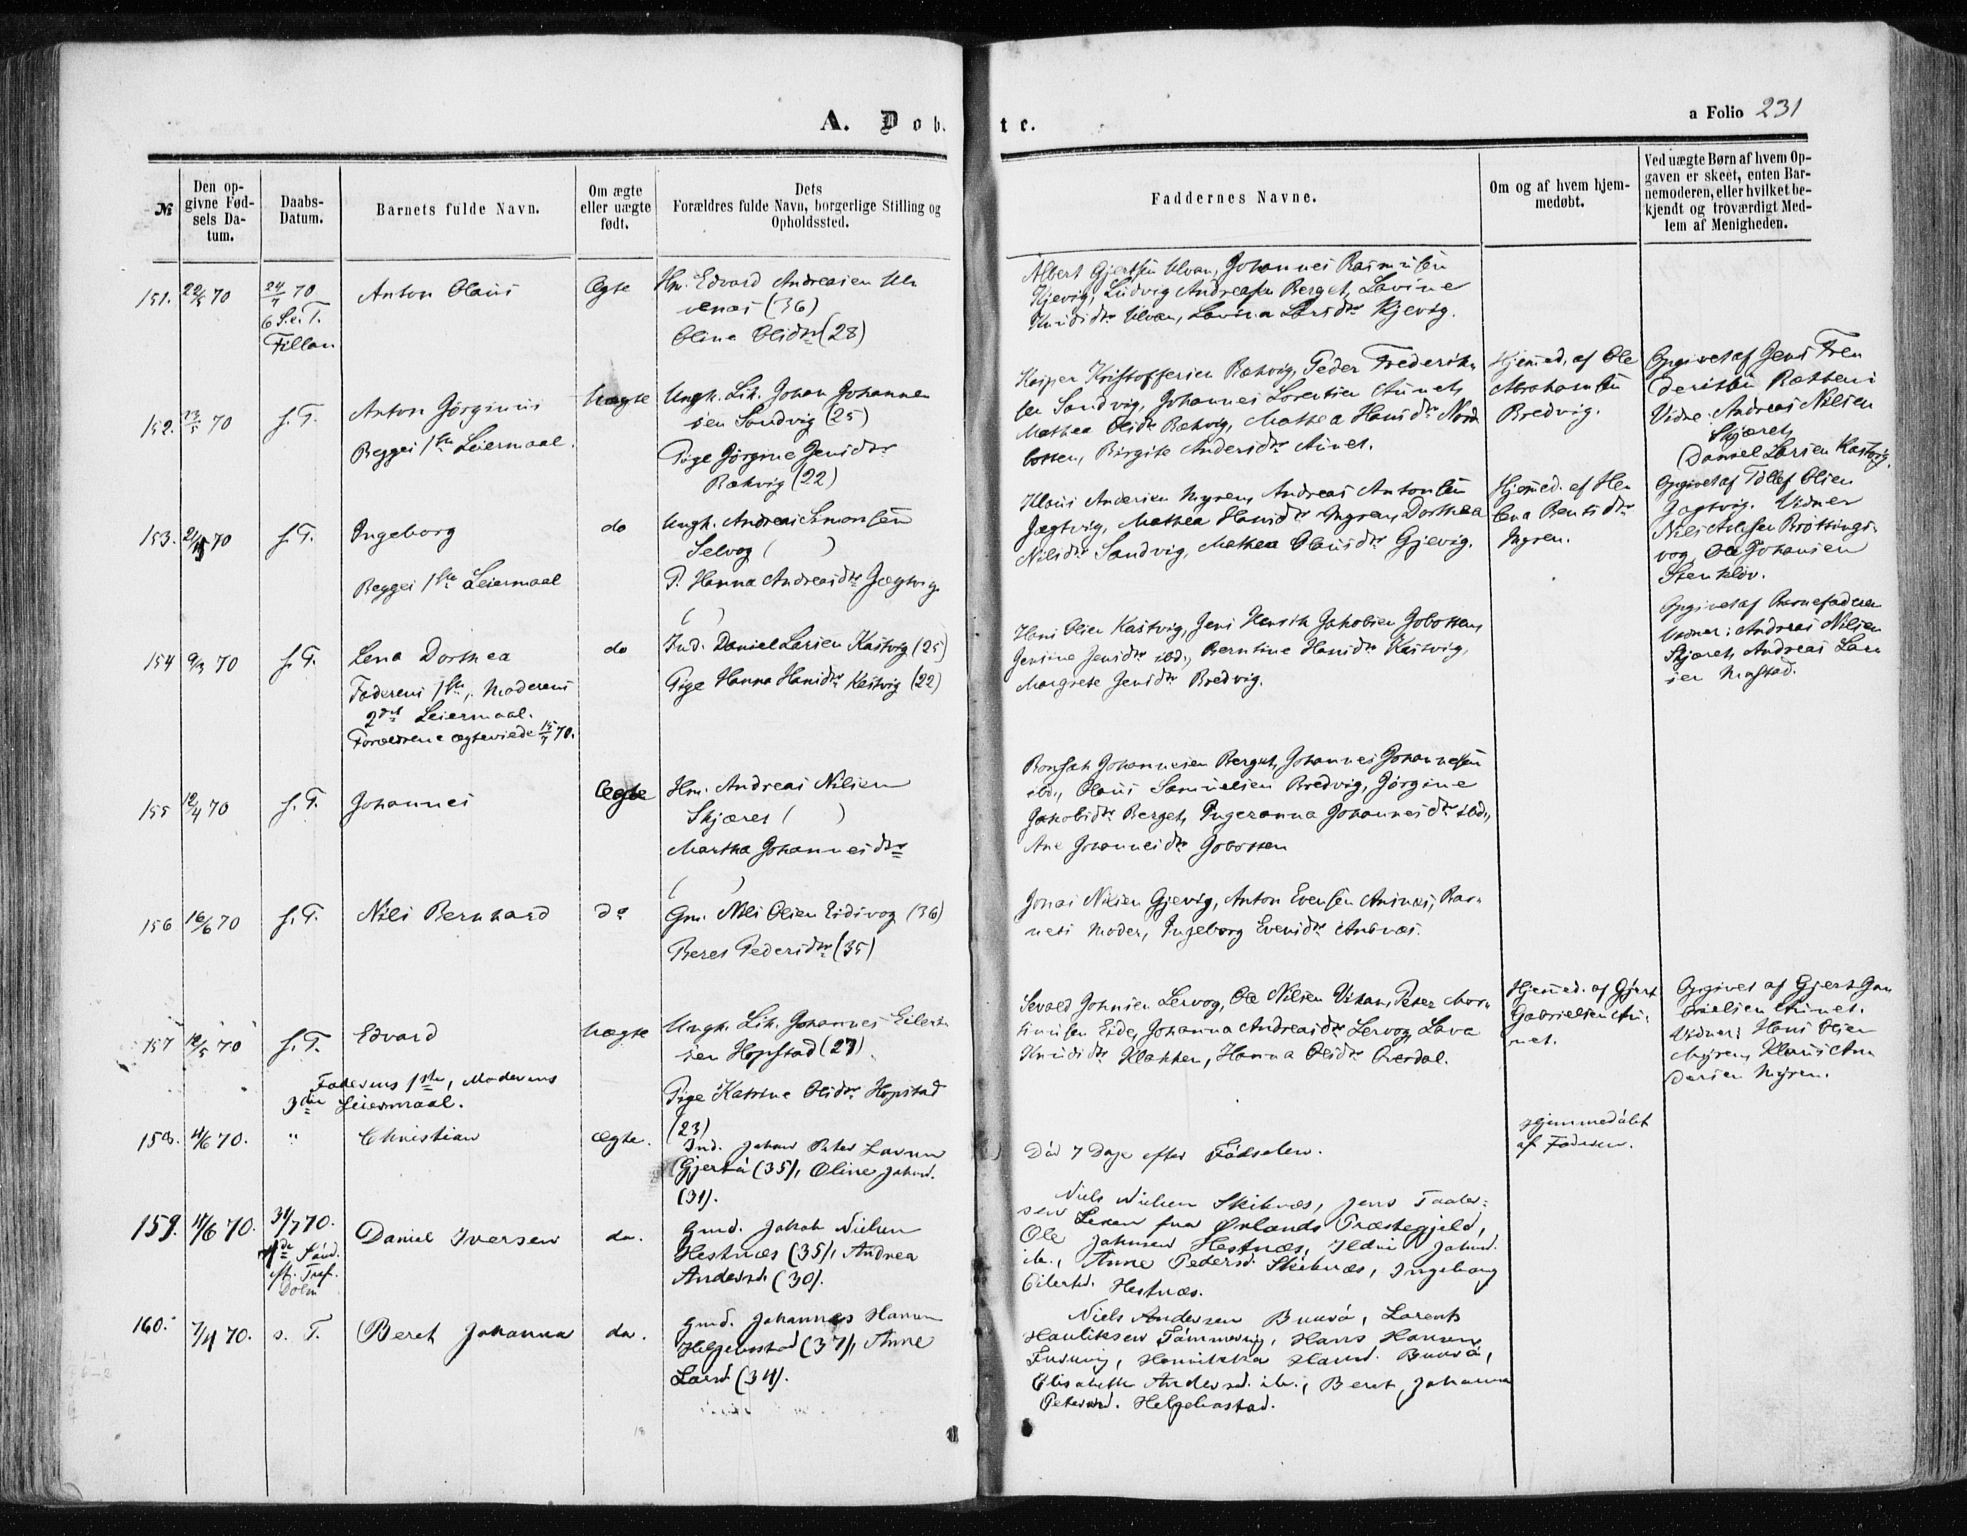 A. Døb- te.
a Folio 231
№
Den op-
givne Fød-
sels Da-
tum.
Daabs-
Datum.
Barnets fulde Navn.
Om ægte
eller uægte
født.
Dets
Forældres fulde Navn, borgerlige Stilling og
Opholdssted.
Faddernes Navne.
Om og af hvem hjem-
medøbt.
Ved uægte Børn af hvem Op-
gaven er skeet, enten Bar-
nemoderen, eller hvilket be-
kjendt og troværdigt Med-
lem af Menigheden.
151.
70
24/7 70
6 S. e. T.
Fillan
Anton Olaus
Ægte
Hm. Edvard Andreasen Ul-
venæs (36)
Oline Olsdtr (28)
Albert Gjertsen Ulvan, Johannes Rasmusen
Kjevig, Ludvig Andreasen Berget, Lavine
Knudsdtr Ulvan, Lavina Larsdtr Kjevig.
152.
13/5 70
s. T.
Anton Jørginus
Begges 1ste Leiermaal.
Uægte
Ungk. Lih. Johan Johanne-
sen Sandvig (25)
Pige Jørgine Jensdtr
Rækvig (22)
Kasper Kristoffersen Rækvig, Peder Frederik-
sen Sandvig, Johannes Lorentsen Aunet,
Mathea Olsdtr Rækvig, Mathea Hansdtr Nord-
botten, Birgite Andersdtr Aunet.
Hjemmed. af Ole
Abrahamsen
Bredvig.
Opgivet af Jens Fre-
deriksen
Vidne: Andreas Nilsen
Skjæret,
Daniel Larsen Kastvig.
153.
70
s. T.
Ingeborg
Begges 1ste Leiermaal
do
Ungk. Andreas Simonsen
Selvog ( )
P. Hanna Andreasdtr Jægtvig
( )
Klaus Andersen Myren, Andreas Antonsen
Jægtvig, Mathea Hansdtr Myren, Dorthea
Nilsdtr Sandvig, Mathea Olausdtr Gjevig.
Hjemmed. af He-
lena Bentsdtr
Myren.
Opgivet af Tollef Olsen
Jægtvig. Vidner
Nils
vog, Ole Johansen
Stenkløv.
154
9/3 70
s. T.
Lena Dorthea
Faderens 1ste, Moderens
2det Leiermaal.
Forældrene ægteviede 15/7 70.
do
Ind. Daniel Larsen Kastvig (25)
Pige Hanna Hansdtr Kastvig (22)
Hans Olsen Kastvig, Jens Henrik Jakobsen Gobotten,
Jensine Jensdtr ibd., Berntine Hansdtr Kastvig,
Margrete Jensdtr Bredvig.
Opgivet af Barnefaderen
Vidner: Andreas Nilsen
Skjæret, Andreas Lar-
sen Mastad.
155
12/4 70
s. T.
Johannes
Ægte
Hm. Andreas Nilsen
Skjæret ( )
Martha Johannesdtr
( )
Bonsak Johannesen Berget, Johannes Johannessen
ibd., Olaus Samuelsen Bredvig, Jørgine
Jakobsdtr Berget, Ingeranna Johannesdtr ibd.,
Ane Johannesdtr Gobotten
156
16/6 70
s. T.
Nils Bernhard
do
Gm. Nils Olsen Eidsvog (36)
Beret Pedersdtr (35)
Jonas Nilsen Gjevig, Anton Evensen Ansnæs, Bar-
nets Moder, Ingeborg Evensdtr Ansnæs.
157
70
s. T.
Edvard
Faderens 1ste, Moderens
3die Leiermaal.
Uægte
Ungk. Lih. Johannes Eilert-
sen Hopstad (27)
Pige Katrine Olsdtr Hopstad
(23)
Sevald Johnsen Lervog, Ole Nilsen Vikan, Peter Mor-
tinusen Eide, Johanna Andreasdtr Lervog, Lava
Knudsdtr Klakken, Hanna Olsdtr Overdal.
Hjemmed. af Gjert
Gabrielsen Au-
net.
Opgivet af Gjert Ga-
brielsen Aunet.
Vidner: Hans Olsen
Myren, Klaus An-
dersen Myren.
158.
4/6 70.
"
Christian
ægte.
Ind. Johan Peter Larsen
Gjertø (35), Oline Johnsd.
(31).
Død 7 Dage efter Fødselen.
Hjemmedøbt
af Faderen.
159.
4/6 70.
31/7 70.
7de Sønd.
eft. Tref.
Dolm
Daniel Iversen
do.
Gmd. Jakob Nielsen
Hestnæs (35), Andrea
Andersd. (30).
Niels Nielsen Skiknæs, Jens
sen Leran fra Ørlands Præstegjeld,
Ole Johnsen Hestnæs, Johnsd.
ib., Anne Pedersd. Skiknæs, Ingeborg
Eilertsd. Hestnæs.
160.
7/4 70.
s. T.
Beret Johanna
do.
Gmd. Johannes Hansen
Helgebostad (37), Anne
Larsd. (34).
Niels Andersen Buskø, Lorents
Hansen
Henrikka Hansd.
Elisabeth Andersd. ib., Beret Johanna
Petersd. Helgebostad.